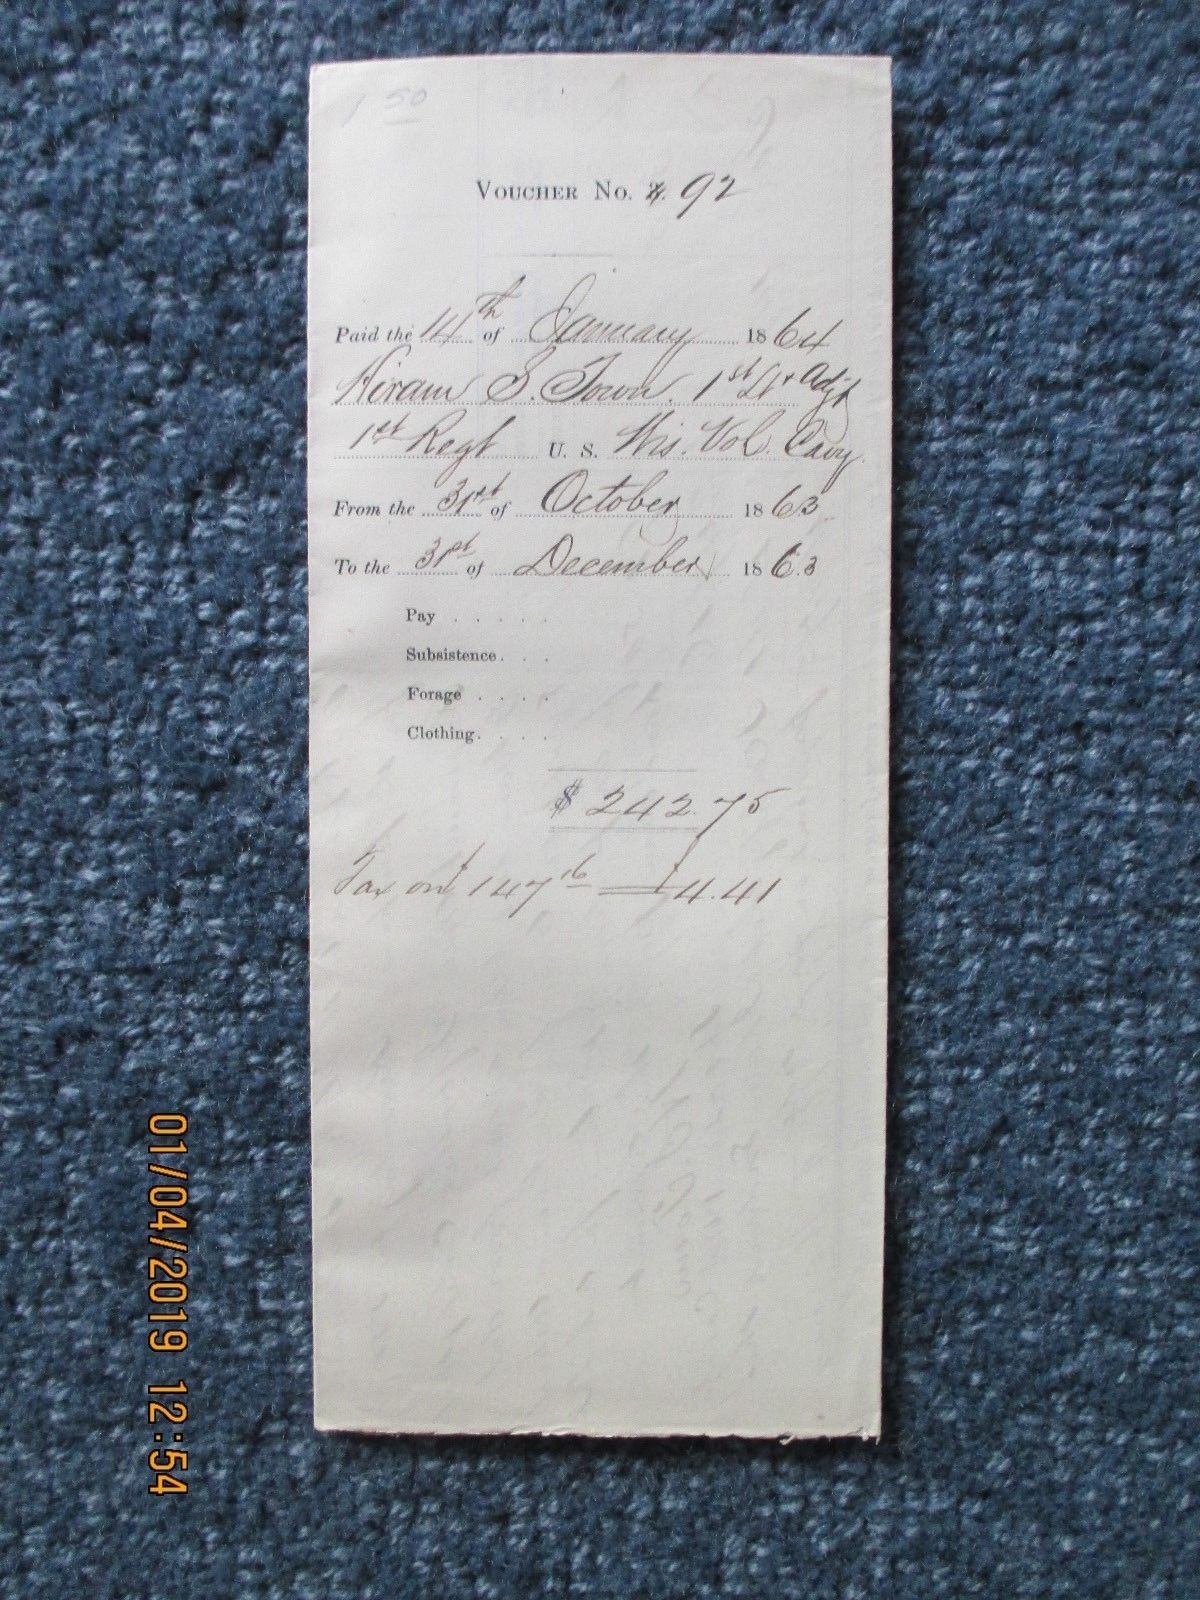 1 50
VOUCHER No. 92
Paid the 14th of January 1864
Hiram S. Town. 1st Lt & Adjt
1st Regt U. S. Wis. Vol. Cavy.
From the 31st of October 1863
To the 31st of December 1863
Pay . . . . .
Subsistence . . .
Forage . . . .
Clothing . . . .
$ 242.75
Tax on 147 16 = 4.41
01/04/2019 12:54